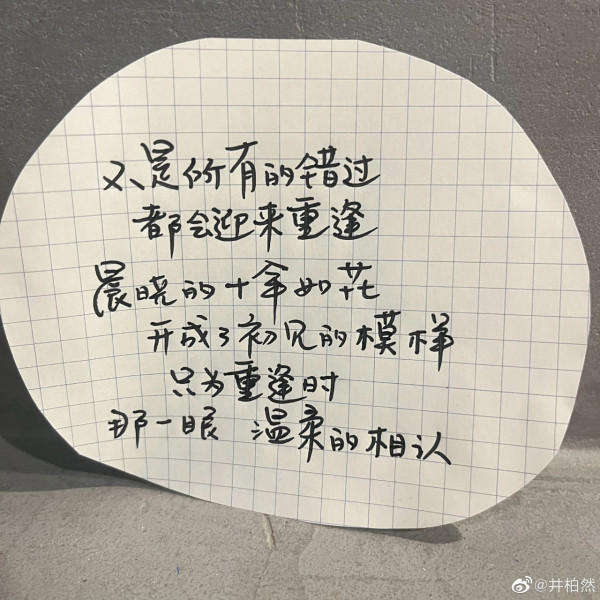 不是所有的错过
都会迎来重逢
晨晓的十拿如花
开成了初见的模样
只为重逢时
那一眼 温柔的相认
@井柏然